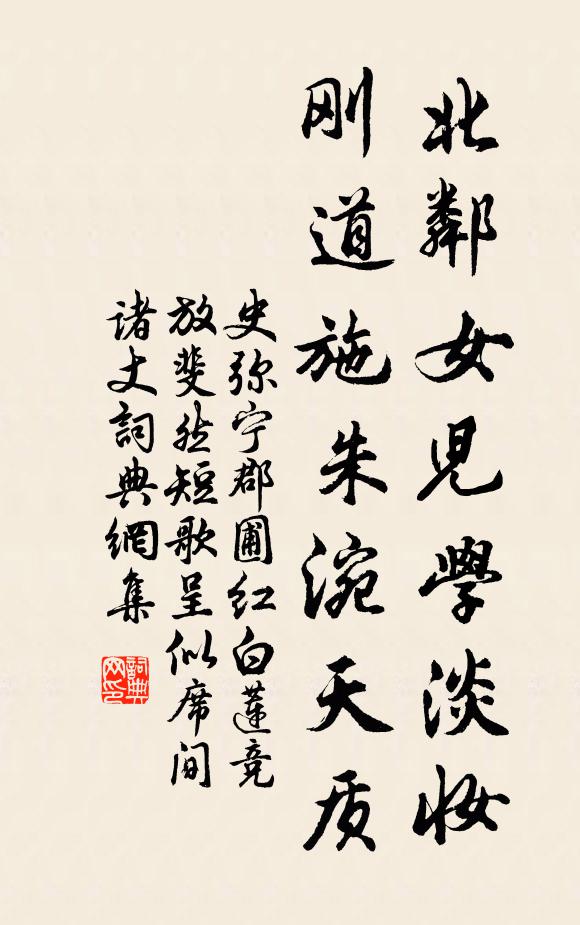 北鄰女児學淡妝
刚道施朱涴天质
史弥宁郡圃红白莲竞
放斐然短歌呈似席间
诸丈詞典網集
詞典网印